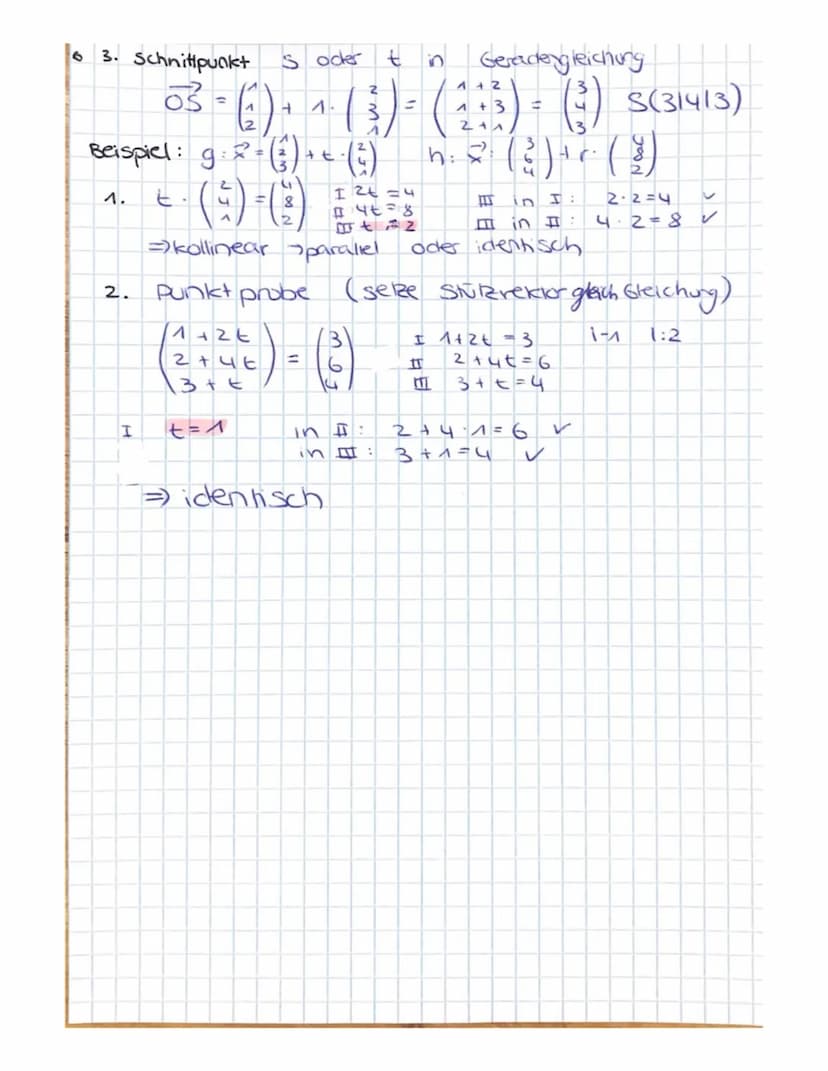 3. Schnittpunkt S oder t in Geradengleichung
OS⃗ = (1 1 2) + 1 · (2 3 1) = (1+2 1+3 2+1) = (3 4 3) S(3|4|3)
Beispiel: g: x⃗ = (1 2 3) + t · (2 4 1) h: x⃗: (3 6 4) + r · (4 8 2)
1. t · (2 4 1) = (4 8 2)
I 2t = 4
II 4t = 8
III t = 2
III in I: 2·2=4 ✓
III in II: 4·2=8 ✓
⇒ kollinear → parallel oder identisch
2. Punktprobe (setze Stützvektor gleich Gleichung)
(1+2t 2+4t 3+t) = (3 6 4)
I 1+2t = 3 |-1 |:2
II 2+4t = 6
III 3+t = 4
I t = 1 in II: 2+4·1=6 ✓
in III: 3+1=4 ✓
⇒ identisch